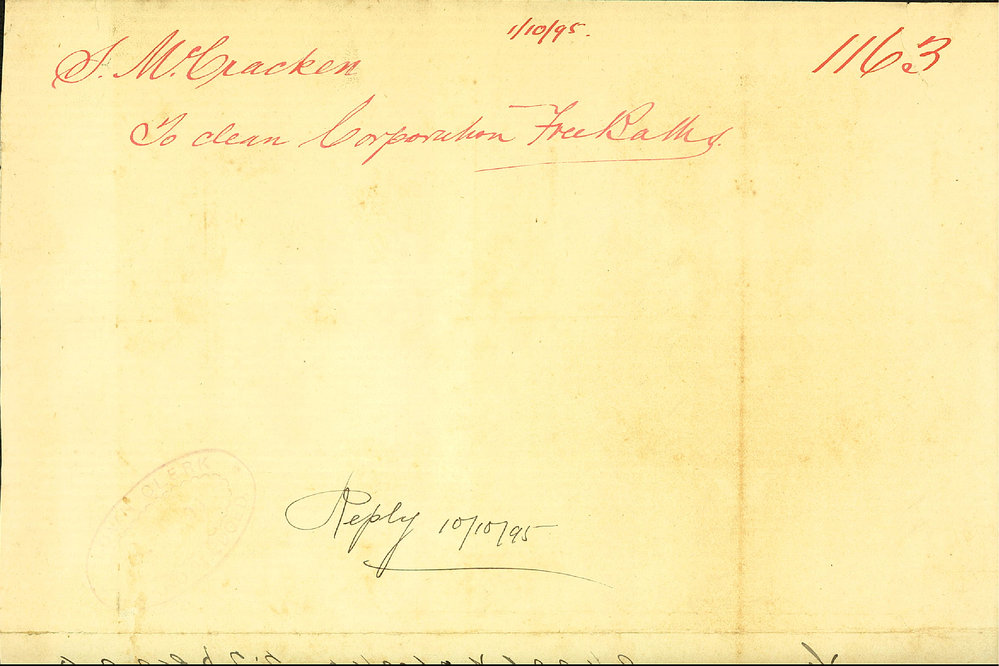 1/10/95.
1163
S. McCracken
To clean Corporation Free Baths.
CLERK
Reply 10/10/95